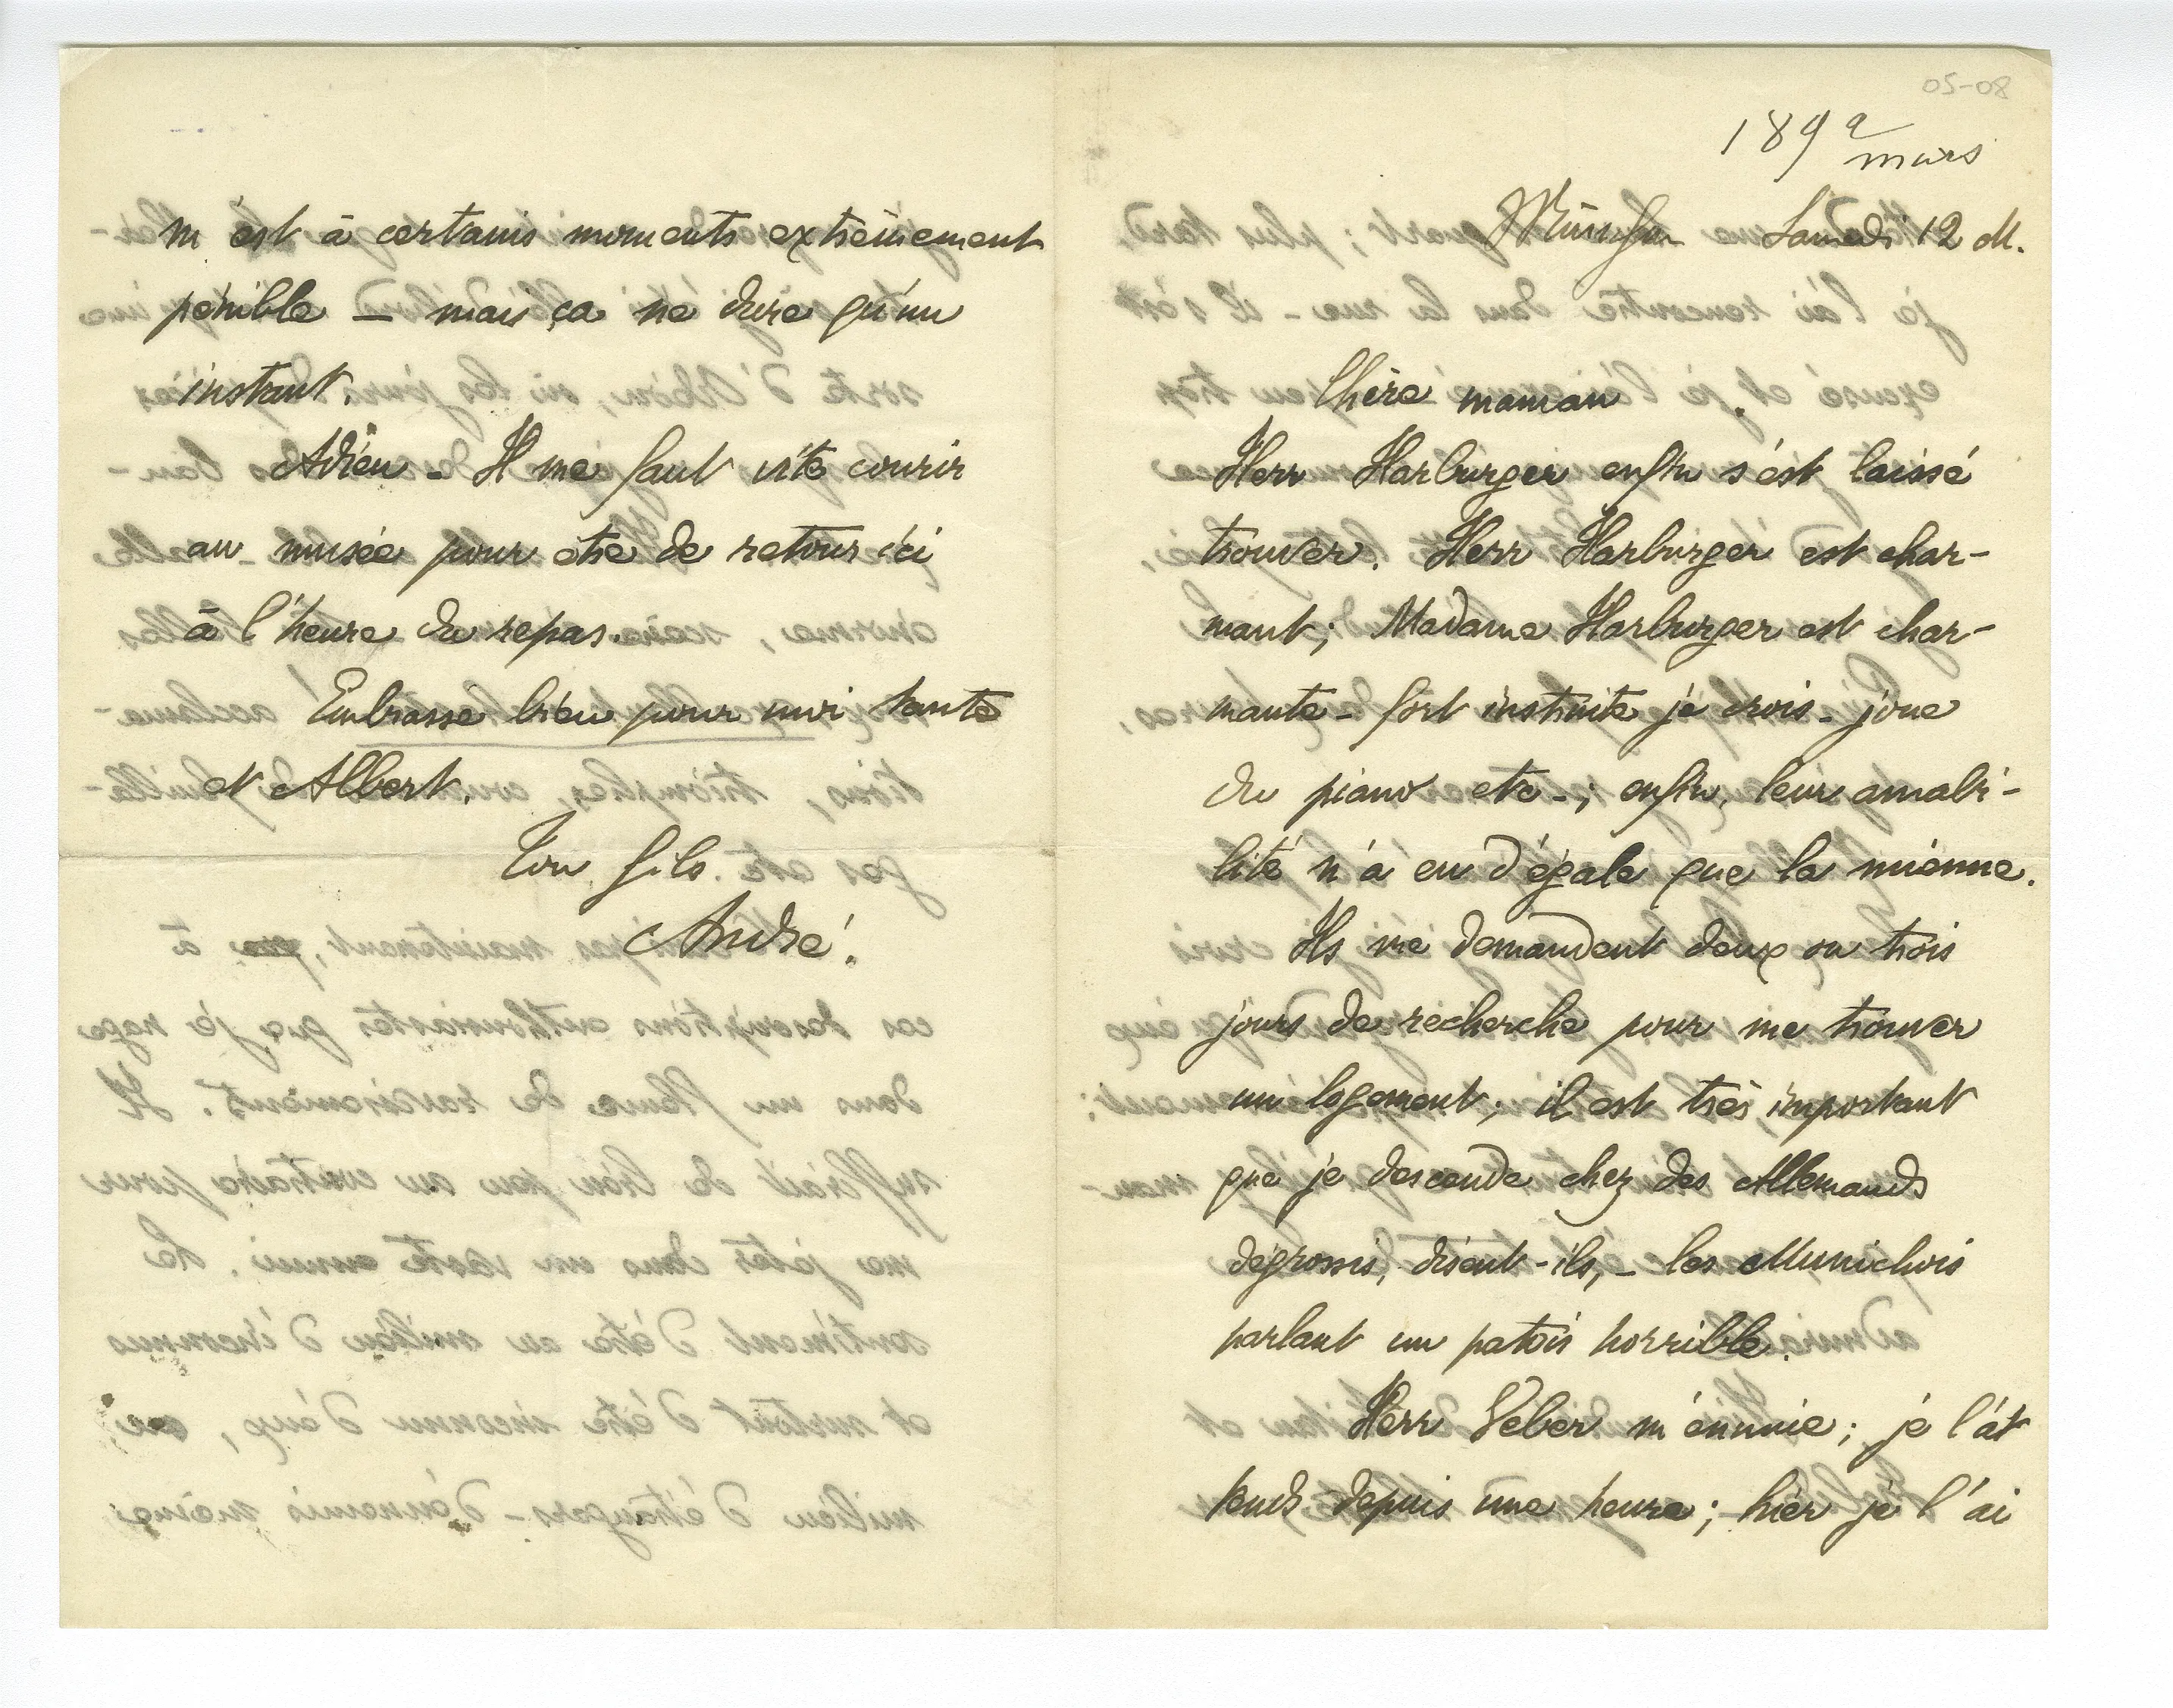 05-08
1892
mars
München Samedi 12 M.
Chère maman
Herr Harburger enfin s'est laissé
trouver. Herr Harburger est char-
mant; Madame Harburger est char-
mante - fort instruite je crois - joue
du piano etc -; enfin, leur amabi-
lité n'a eu d'égale que la mienne.
Ils me demandent deux ou trois
jours de recherche pour me trouver
un logement; il est très important
que je descende chez des Allemands
dégrossis, disent-ils, - les Munichois
parlant un patois horrible.
Herr Veber m'ennuie; je l'at
tends depuis une heure; hier je l'ai
m'est à certains moments extrêmement
pénible — mais ça ne dure qu'un
instant.
Adieu - Il me faut vite courir
au musée pour être de retour ici
à l'heure du repas.
Embrasse bien pour moi tante
et Albert.
Ton fils.
André.